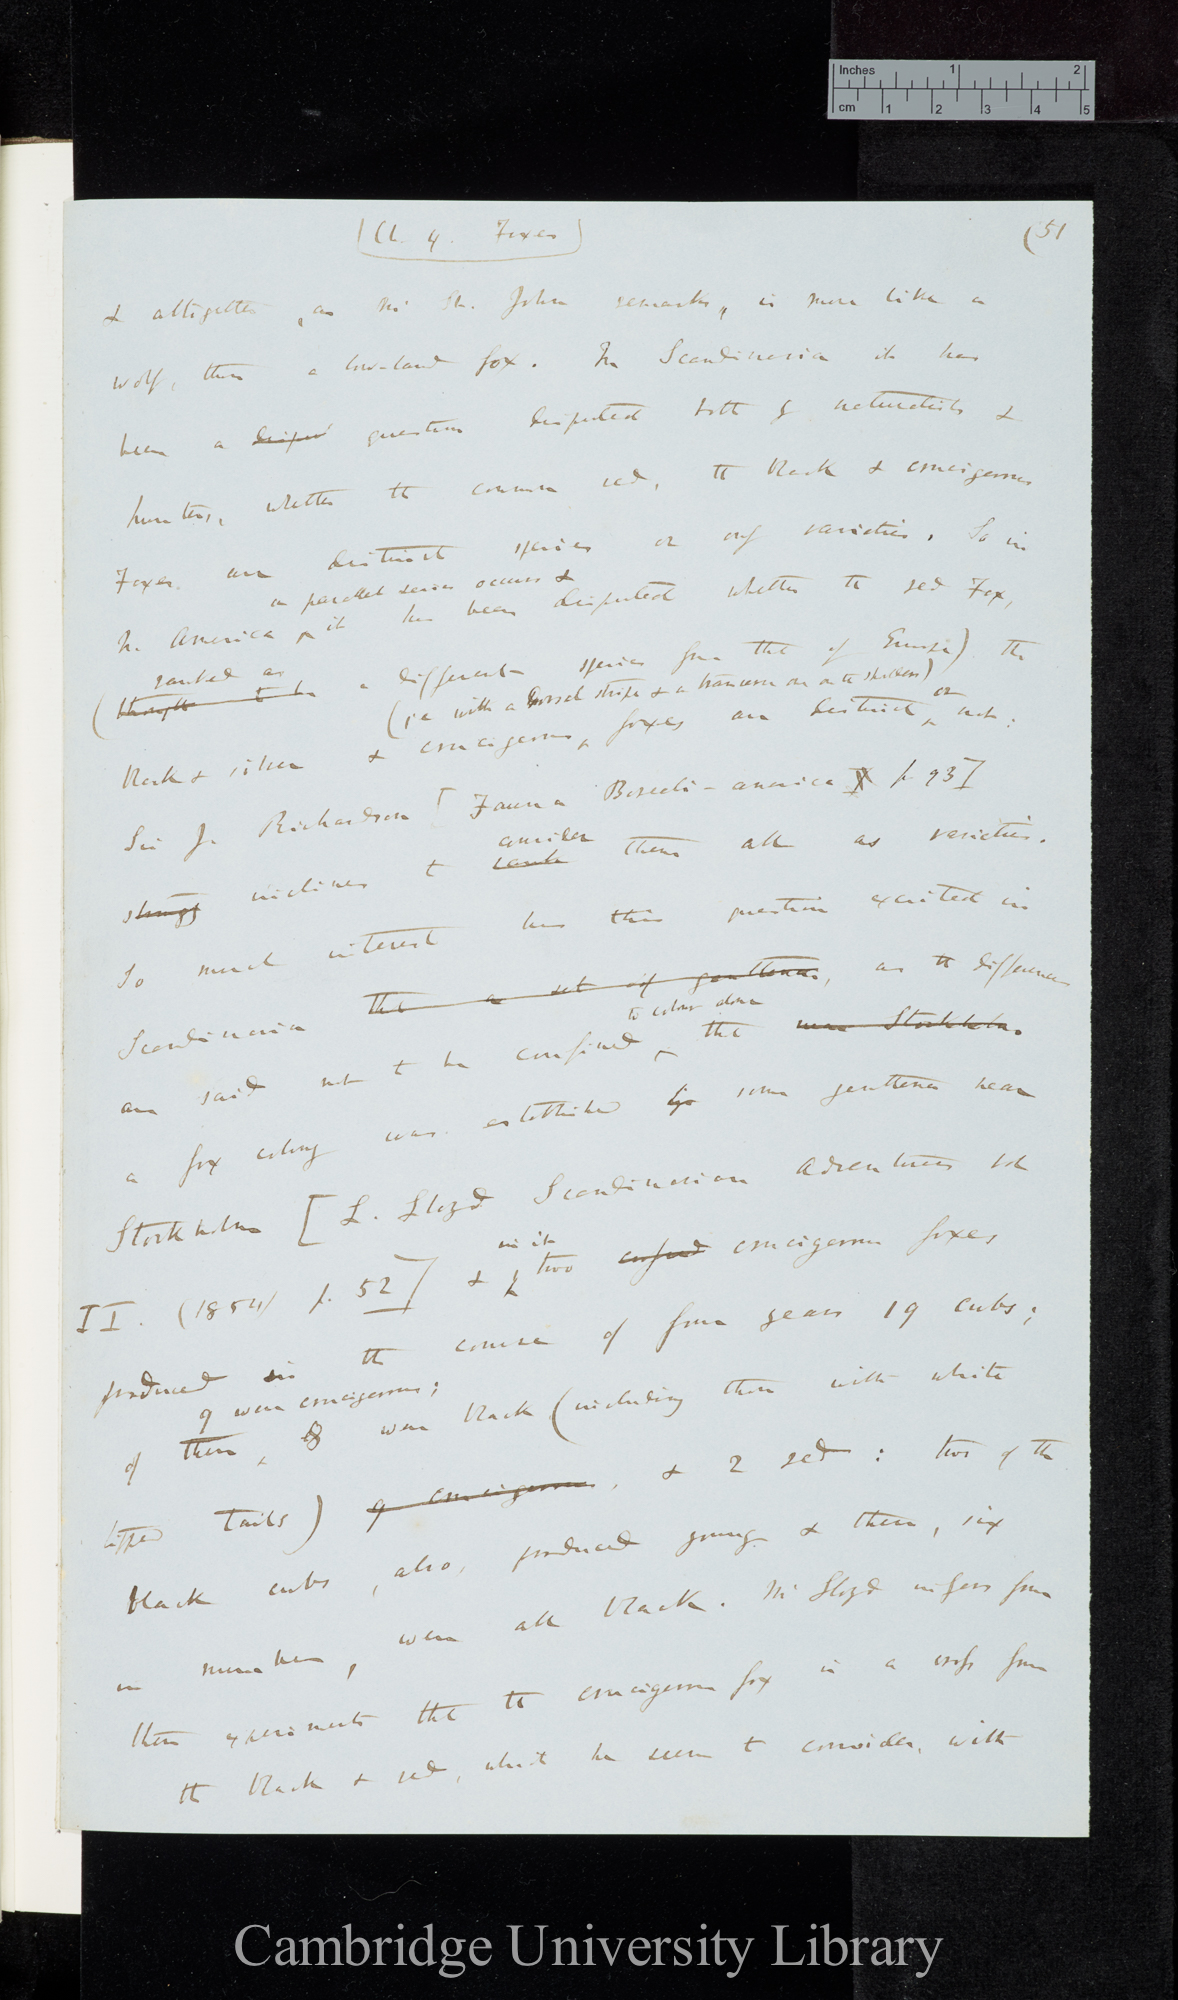 Inches 1 2
cm 1 2 3 4 5
(Ch. 4. Foxes)
(51
& altogether, as Mr St. John remarks, is more like a
wolf, than a low-land fox. In Scandinavia it has
been a question disputed both by naturalists &
hunters, whether the common red, the black & crucigerous
Foxes are distinct species or only varieties. So in
a parallel series occurs &
N. America, it has been disputed whether the red Fox,
ranked as
(thought to be a different species from that of Europe) the
(ie with a dorsal stripe & a transverse one on the shoulders)
black & silver & crucigerous, foxes are distinct, or not:
Sir J. Richardson [Fauna Boreali-america p. 93]
consider
strongly inclines to rank them all as varieties.
So much interest has this question excited in
Scandinavia that a set of gentlemen, as the differences
to colour alone
are said not to be confined, that near Stockholm.
a fox colony was established by some gentlemen near
Stockholm [L. Lloyd Scandinavian Adventures vol
in it
II. (1854) p. 52] & two confined crucigerous foxes
produced in the course of four years 19 cubs;
9 were crucigerous;
of them, 8 were black (including them with white
tipped tails) 9 crucigerous, & 2 red: two of the
black cubs, also, produced young & them, six
in number, were all black. Mr Lloyd infers from
these experiments that the crucigerous fox is a cross from
the black & red, which he seems to consider, with
Cambridge University Library